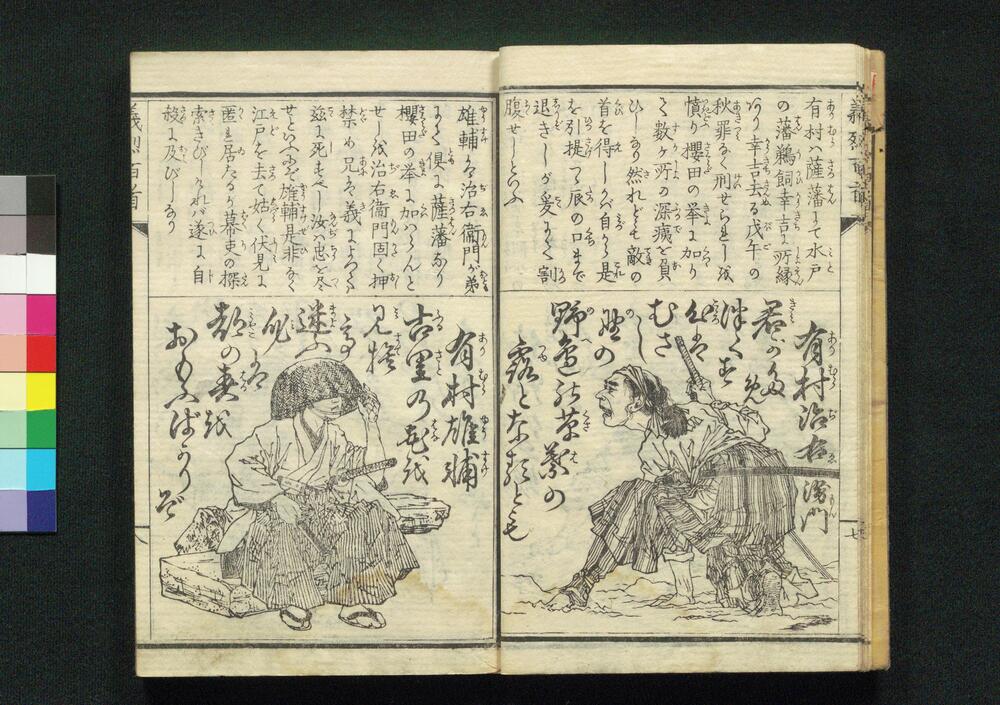 義烈百首
有村ハ薩藩にて水戸
の藩鵜飼幸吉に所縁
あり幸吉去る戊午の
秋罪なく刑せられしを
憤り櫻田の挙に加り
て数ヶ所の深痍を負
ひしあり然れども敵の
首を得しかバ自から是
を引提て辰の口まで
退きしが爰にて割
腹せしといふ
有村治右衛門
君が為
津くす
心は
むさし
野の
野辺の草葉の
露となるとも
七
雄輔ハ治右衛門が弟
にて倶に薩藩なり
櫻田の挙に加ハらんと
せしを治右衛門固く押
禁め兄ハ義によつて
途に死すべし汝ハ忠を尽
せといふにぞ雄輔是非なく
江戸を去て姑く伏見に
匿れ居たるが幕吏の探
索きびしけれバ遂に自
殺に及びしなり
有村雄輔
古里の花を
見捨
て
迷ふ
身
ハ
都の春を
おもふばかりぞ
八
義烈百首